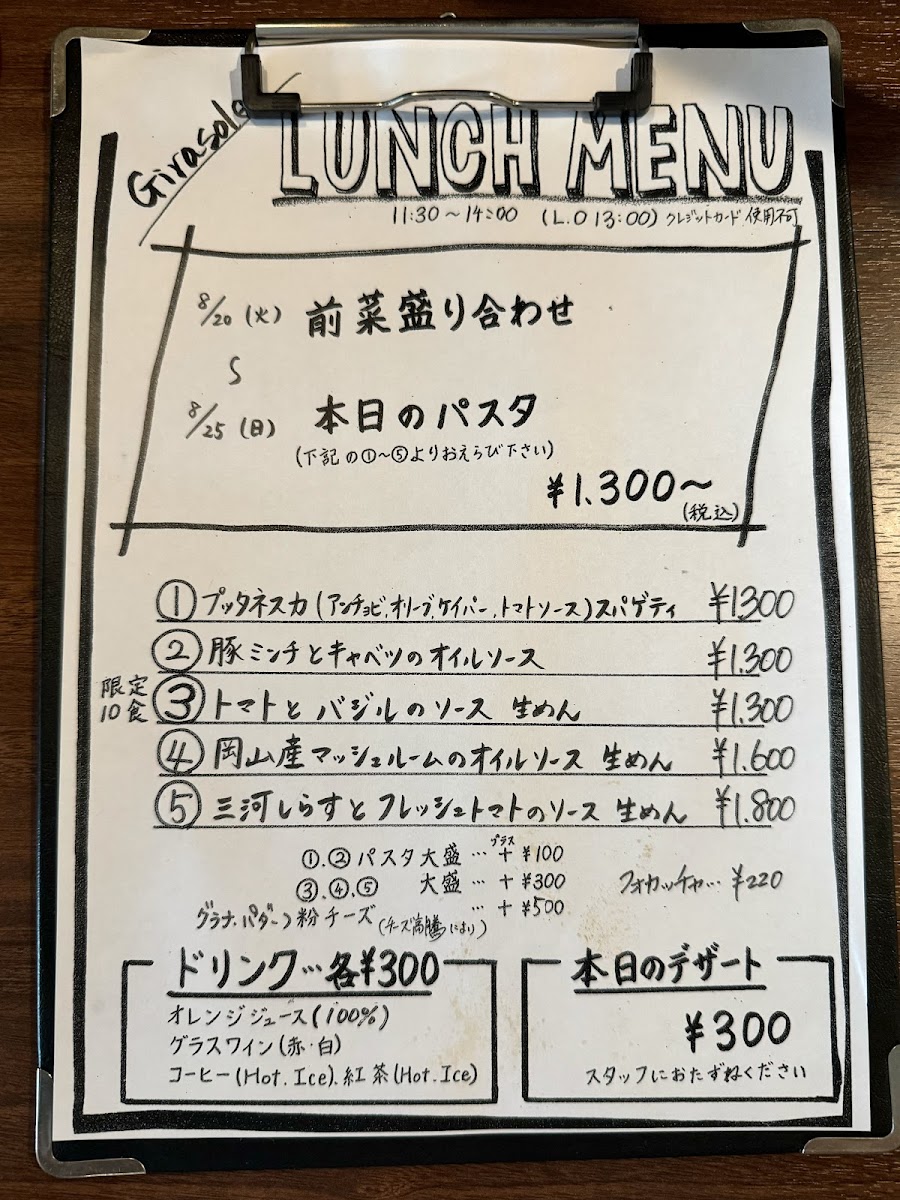 Girasole
LUNCH MENU
11:30～14:00 (L.O 13:00) クレジットカード 使用不可
8/20 (火) 前菜盛り合わせ
〜
8/25 (日) 本日のパスタ
(下記の①～⑤よりおえらび下さい)
¥1.300～
(税込)
① プッタネスカ (アンチョビ.オリーブ.ケイパー.トマトソース) スパゲティ ¥1300
② 豚ミンチとキャベツのオイルソース ¥1.300
限定10食 ③ トマトと バジルのソース 生めん ¥1.300
④ 岡山産マッシュルームのオイルソース 生めん ¥1.600
⑤ 三河しらすと フレッシュトマトのソース 生めん ¥1.800
プラス
①.② パスタ大盛 … + ¥100
③.④.⑤ 大盛 … + ¥300
フォカッチャ… ¥220
グラナ.パダーノ粉チーズ (チーズ高騰により) … + ¥500
ドリンク…各¥300
オレンジジュース (100%)
グラスワイン (赤・白)
コーヒー (Hot. Ice). 紅茶 (Hot. Ice)
本日のデザート
¥300
スタッフにおたずねください